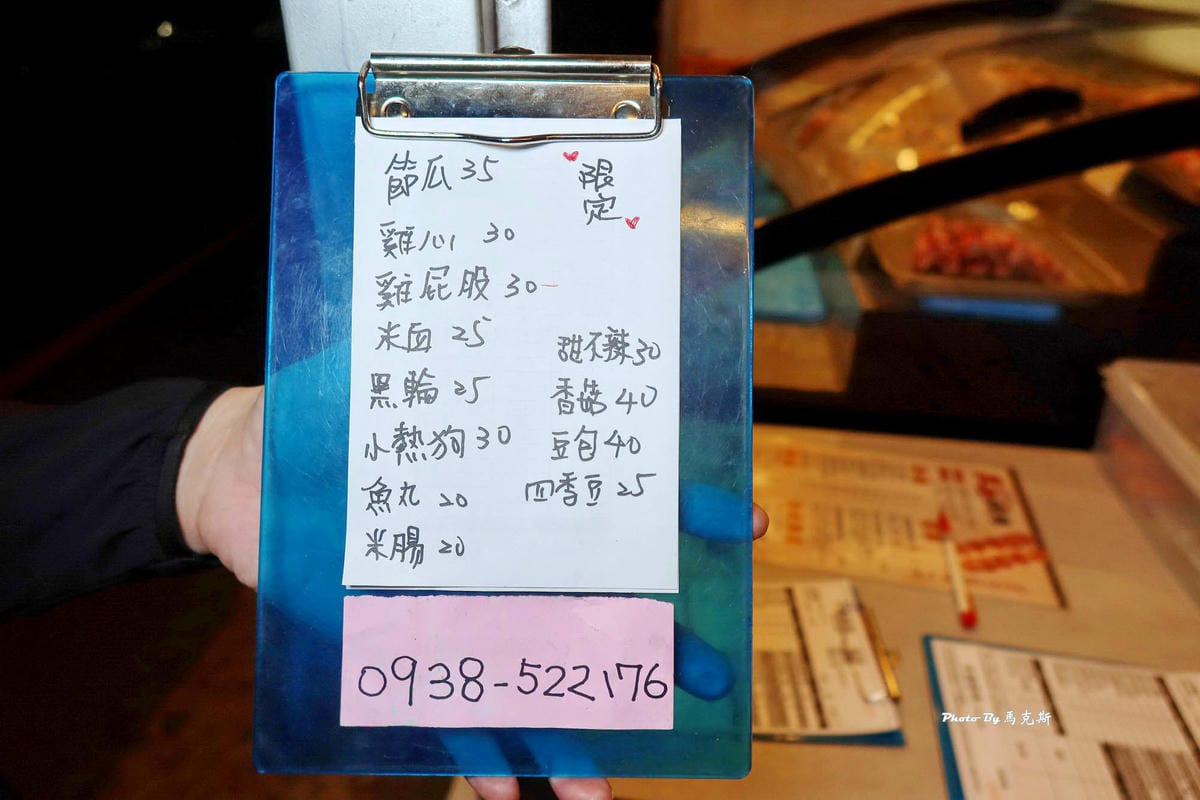 節瓜 35
限
定
雞心 30
雞屁股 30
米血 25
黑輪 25
小熱狗 30
魚丸 20
米腸 20
甜不辣 30
香菇 40
豆包 40
四季豆 25
0938-522176
Photo By 馬克斯